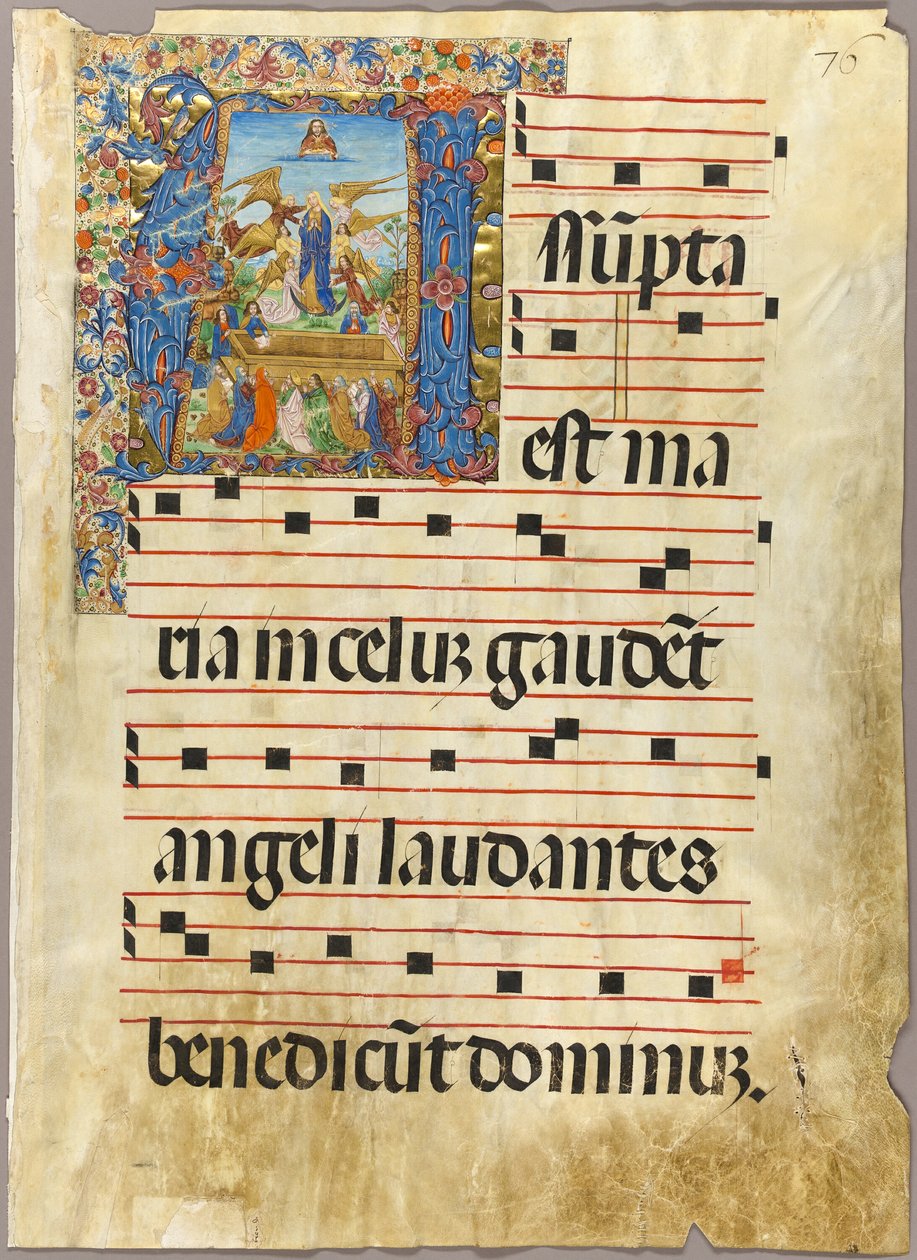 76
Assũpta
est ma
ria in celuʒ gaudẽt
angeli laudantes
benedicũt dominuʒ.